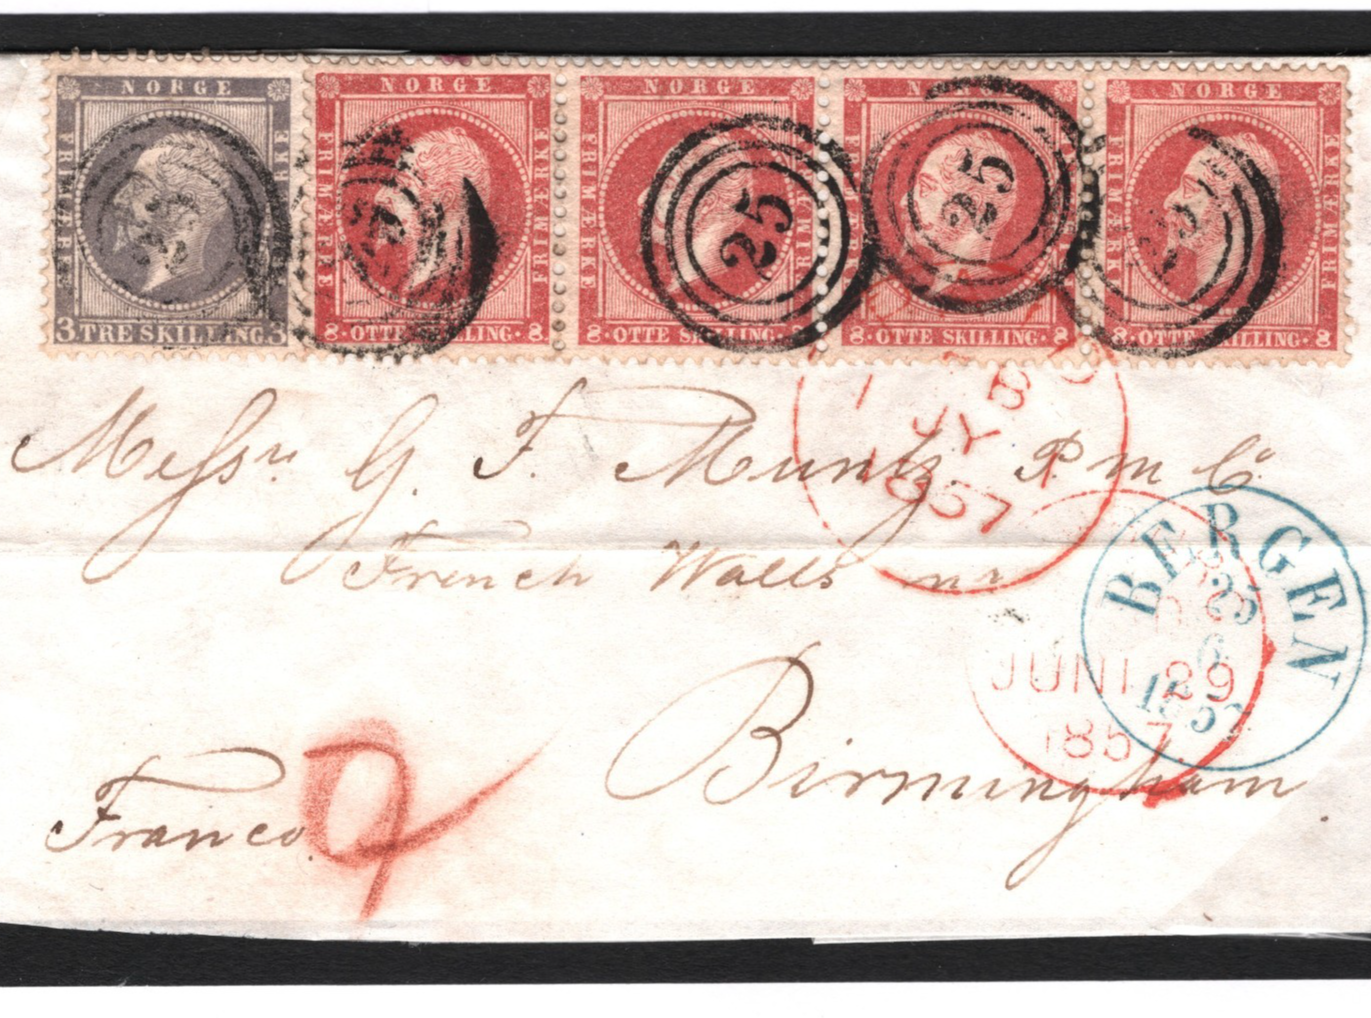 NORGE NORGE NORGE NORGE NORGE
FRIMÆRKE FRIMÆRKE FRIMÆRKE FRIMÆRKE FRIMÆRKE FRIMÆRKE
25 25 25 25
3 TRE SKILLING. 3 8·OTTE SKILLING·8 8·OTTE SKILLING·8 8·OTTE SKILLING·8 8·OTTE SKILLING·8
1 JY
1857
Messrs G. F. Muntz P. m Co
French Walls nr
BERGEN
25
6
1857
JUNI 29
1857.
Birmingham.
Franco.